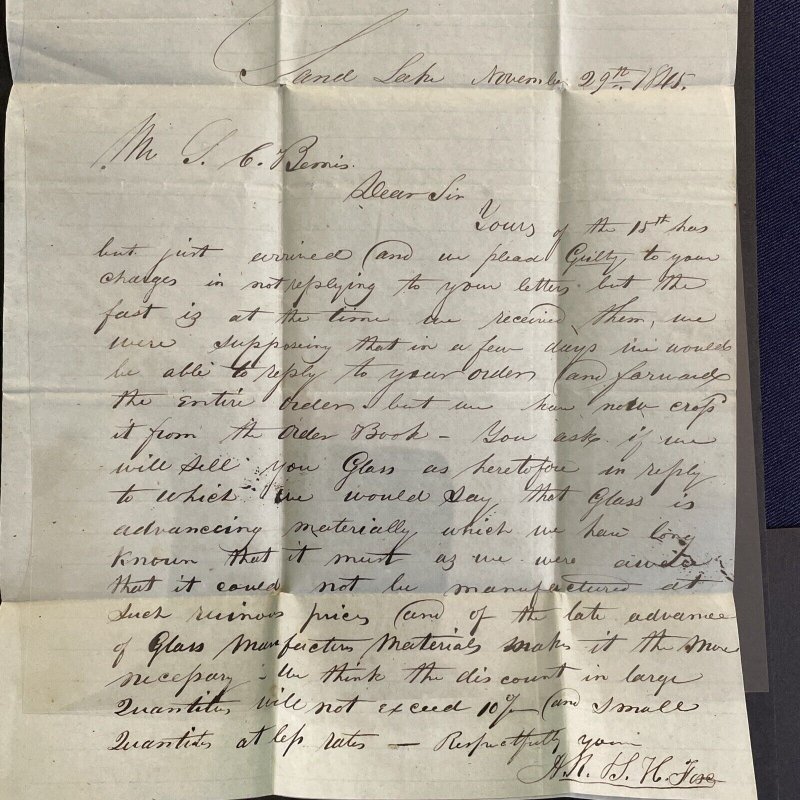 Sand Lake November 29th, 1845.
Mr S. C. Bemis.
Dear Sir
Yours of the 15th has
but just arrived (and we plead Guilty to your
charges in not replying to your letters but the
fact is at the time we received them, we
were supposing that in a few days we would
be able to reply to your orders (and forward
the entire order but we have now cross
it from the Order Book - You ask if we
will sell you Glass as heretofore in reply
to which we would say that Glass is
advancing materially which we have long
known that it must as we were aware
that it could not be manufactured at
such ruinous prices (and of the late advance
of Glass Manfacturs Materials makes it the more
necessary - We think the discount in large
Quantities will not exceed 10% (and small
Quantities at less rates - Respectfully yours
A. R. & S. H. Fox